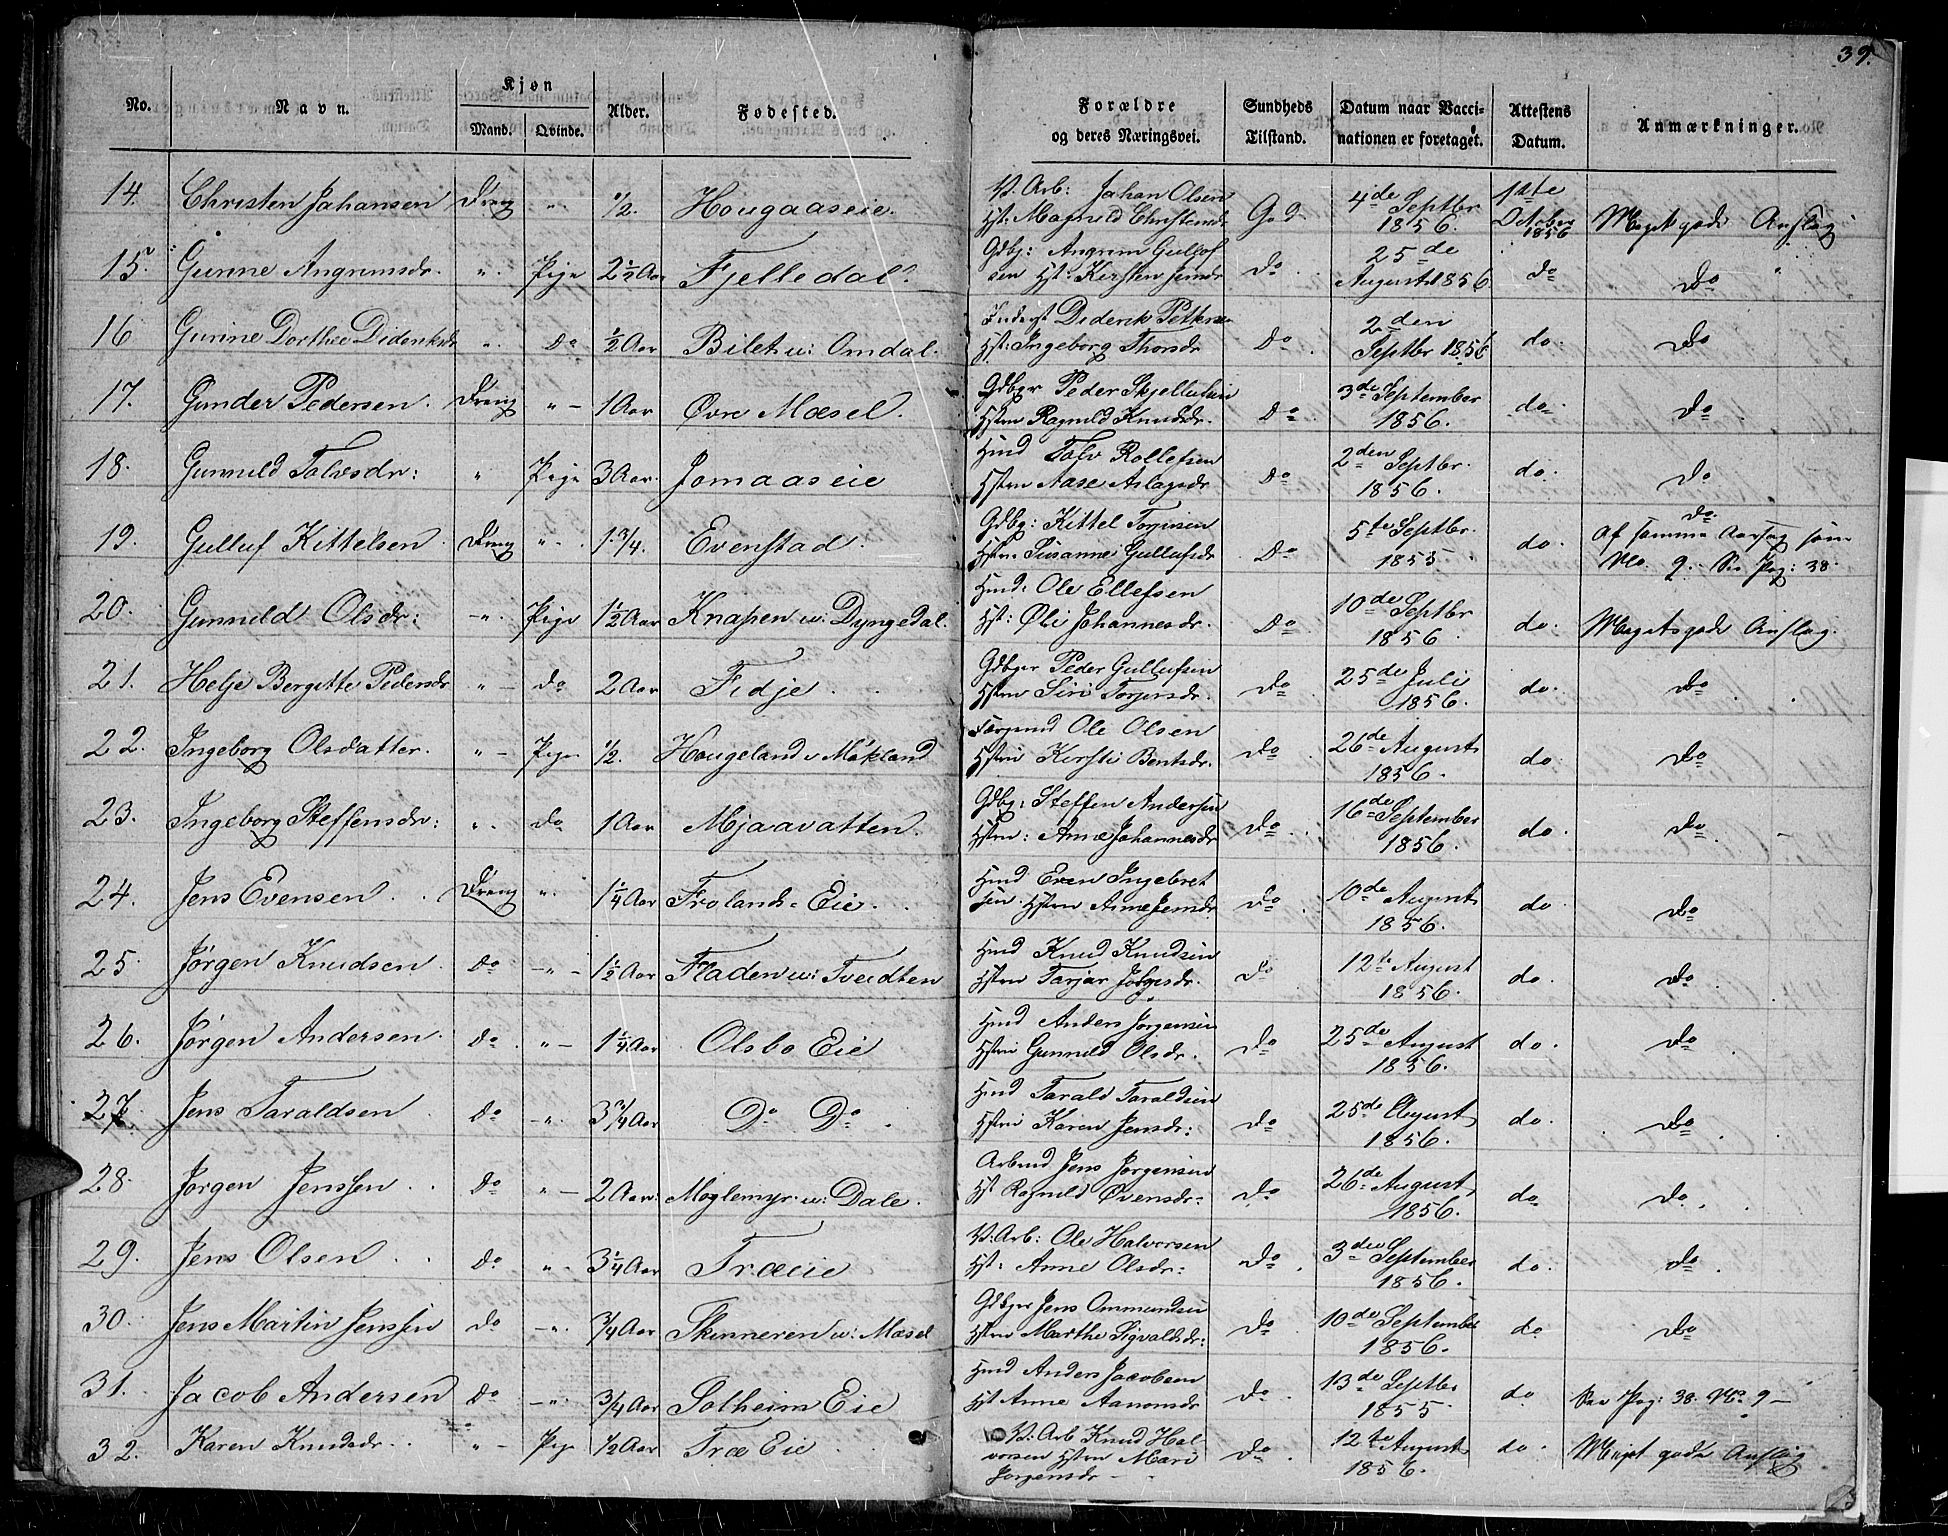 39.
No. Navn. Kjøn Alder. Fødested. Forældre Sundheds Datum naar Vacci- Attestens Anmærkninger.
Mand. Qvinde. og deres Næringsvei. Tilstand. nationen er foretaget. Datum.
14. Christen Johansen Dreng " 1/2. Hougaaseie. V. Arb: Johan Olsen God 4de Septbr 1ste
Hst: Magnild Christensdr 1856. October 1856 Meget gode Anslag
15. Gunne Angrimsdr. ". Pige 2 1/2 Aar Fjelledal. Gdbg: Angrim Gullof
sen Hst: Kirsten Jensdr Do 25de August 1856 do Do "
16 Gurine Dorthee Dideriksdr ". Do 1/2 Aar Bilet u: Omdal. Inderst Diderik Petters
Hst: Ingeborg Thorsdr Do 2den Septbr 1856 do. Do
17. Gunder Pedersen. Dreng " - 1 Aar Øvre Mæsel. Gdbgr Peder Skjellulsen
Hstru Ragnild Knudsdr. Do 3de September 1856. do Do
18. Gunnild Talvsdr: " Pige 3 Aar. Jomaaseie Hmd Talv Rollefsen
Hstru Aase Aslagsdr Do 2den Septbr. 1856. do. Do
19. Gulluf Kittelsen. Dreng " - 1 3/4. Evenstad. Gdbg: Kittel Torjusen
Hstru Susanne Gullufsdr Do 5te Septbr. 1855 do. Do Af samme Aarsag som
No. 9. See Pag: 38.
20. Gunnild Olsdr: - ". Pige 1 1/2 Aar Knapen u. Dyngedal. Hmd: Ole Ellefsen
Hst: Øli Johannesdr. Do 10de Septbr 1856 do. Meget gode Anslag.
21. Helje Bergitte Pedersdr " - do 2 Aar Fidje. Gdbgr Peder Gullufsen
Hstru Siri Torjersdr. Do 25de Juli 1856. do. Do
22. Ingeborg Olsdatter. " - Pige 1/2. Hougeland u Mökland Ole Olsen
Hstru Kirsti Bentsdr. Do 26de August 1856. do Do
23. Ingeborg Steffensdr: ". do 1 Aar Mjaavatten. Gdbg: Steffen Andersen
Hstru: Anne Johannesdr Do 16de September 1856. do Do
24. Jens Evensen. Dreng ". 1 1/4 Aar Frolands-Eie. Hmd Even Ingebret
sen Hstru Anne Jensdr Do 10de August 1856. do Do
25 Jørgen Knudsen. Do - " - 1 1/2 Aar Fladen u: Tveidten Hmd Knud Knudsen
Hstru Tarjer Do 12te August 1856. do. Do
26. Jørgen Andersen. Do " - 1 1/4 Aar Olsbo Eie Hmd Anders Jørgensen
Hstru Gunnild Olsdr. Do 25de August 1856. do. Do
27. Jens Taraldsen Do - ". 3 3/4 Aar Do Do. Hmd Tarald Taraldsen
Hstru Karen Jensdr: Do 25de August 1856. do. Do
28. Jørgen Jenssen Do " - 2 Aar: Moglemyr u: Dale. Arbmd Jens Jørgensen
Hst Ragnild Øvensdr. Do 26de August 1856. do Do
29. Jens Olsen Do " - 3 1/4 Aar Træeie V. Arb: Ole Halvorsen
Hst: Anne Olsdr. Do 3die September 1856. do. Do
30. Jens Martin Jenssen do - ". 3/4 Aar Skinneren u: Mæsel Gdbgr Jens Ommundsen
Hstru Marthe Sigvaldsdr: Do 10de September 1856. do Do
31. Jacob Andersen Do - ". 3/4 Aar Solheim Eie Hmd Anders Jacobsen
Hst Anne Aanonsdr Do 13de Septbr 1855 do See Pag: 38. No. 9 -
32. Karen Knudsdr. " - Pige 1/2 Aar Træ Eie V. Arb Knud Hal-
vorsen Hstru Mari
Jørgensdr - Do 12te August 1856. do. Meget gode Anslag